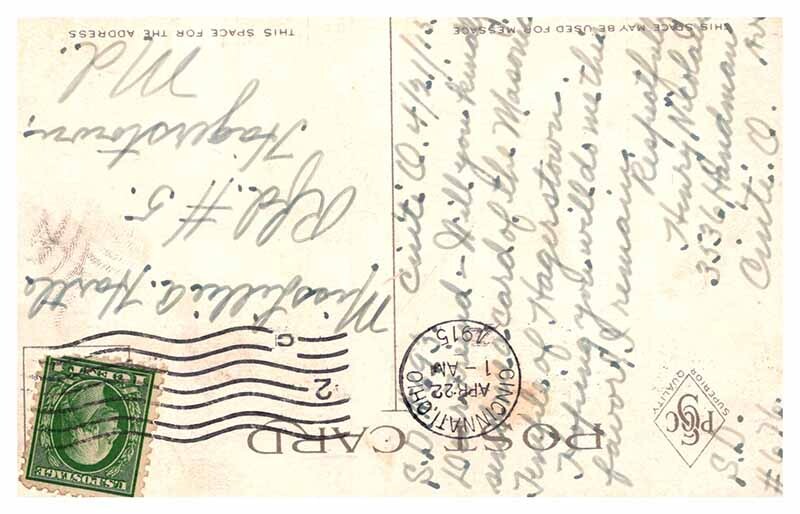 POST CARD
THIS SPACE MAY BE USED FOR MESSAGE
THIS SPACE FOR THE ADDRESS
CINCINNATI, OHIO
APR 22
1-AM
1915
2
C
U.S. POSTAGE
1 CENT 1
SUPERIOR QUALITY
Cinti. O. 4/21/15
Friend - Will you kindly
send me a card of the Masonic
Temple of Hagerstown.
Hoping you will do me this
favor, I remain
Respectfully
Henry Nicolai
3536 Handman
Cinti. O.
Miss Lillie A. Hartle
Rfd. # 5.
Hagerstown,
Md.